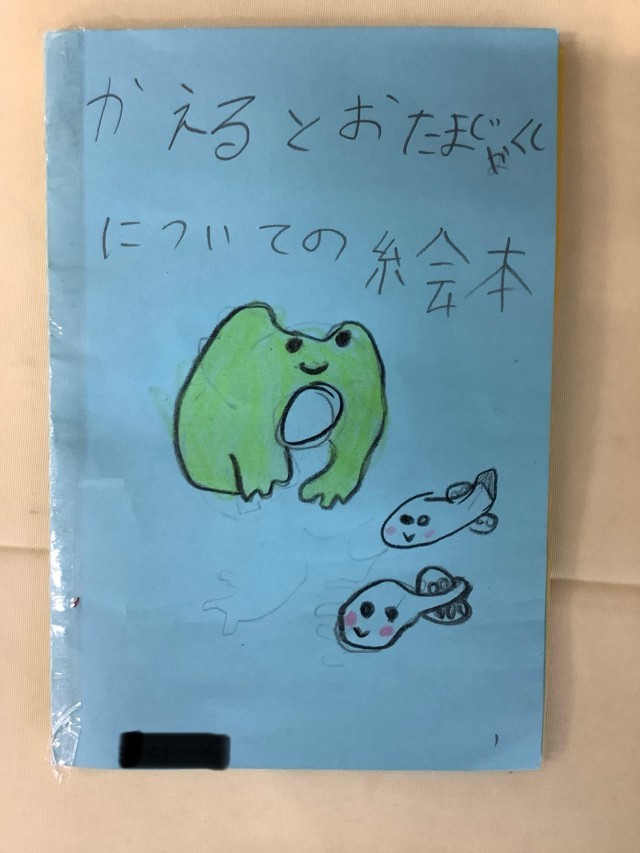 かえるとおたまじゃくし
についての絵本